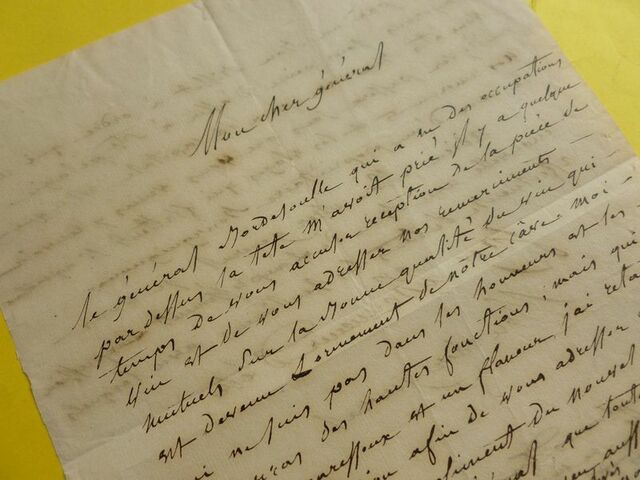 Mon cher général
le général Bordesoulle qui a eu des occupations
par dessus la tete m'avoit prié il y a quelque
temps de vous accuser reception de la pièce de
vin et de vous adresser nos remerciments
mutuels sur la bonne qualité du vin qui
est devenu l'ornement de notre cave. moi
qui ne suis pas dans les honneurs et les
des hautes fonctions, mais qui
paresseux et un flaneur j'ai reta
afin de vous adresser
du nouvel
que tout